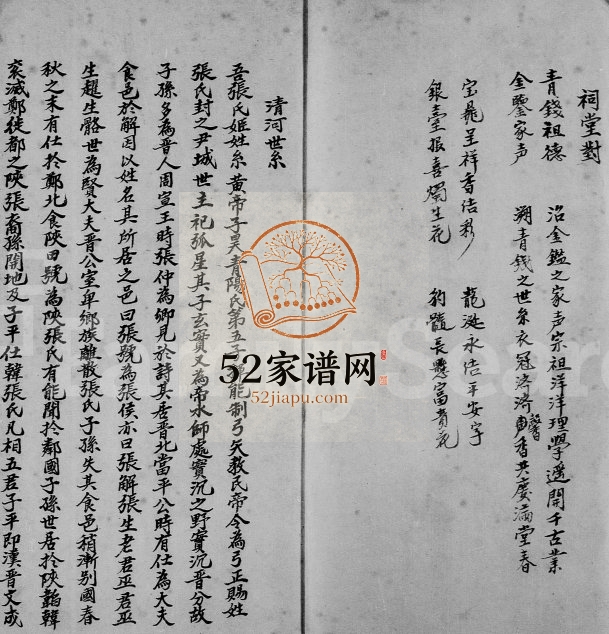 祠堂對
青錢祖德
金鑒家声
沿金鑑之家声宗祖洋洋理學遥開千古業
溯青錢之世系衣冠济济聲香共慶滿堂春
宝鼎呈祥香结彩
銀臺報喜燭生花
龍涎永结平安字
豹髓長悬富貴花
清河世系
吾張氏姬姓系黄帝子昊青陽氏第五能制弓矢教民帝令為弓正賜姓
張氏封之尹城世主祀弧星其子玄實又為帝水師處實沉之野實沉晋分故
子孫多為晋人周宣王時張仲為卿見於詩其居晋北當平公時有仕為大夫
食邑於解因以姓名其所居之邑曰張號為張侯亦曰張解張生老君巫君巫
生趯生骼世為賢大夫晋公室卑鄉族離散張氏子孫失其食邑稍漸别國春
秋之末有仕於鄭北食陝田號為陝張氏有能聞於鄰國子孫世居於陝韜韓
哀滅鄭徙都之陝張裔孫開地及子平仕韓張氏凡相五君子平即漢晋文成
52家谱网
52jiapu.com